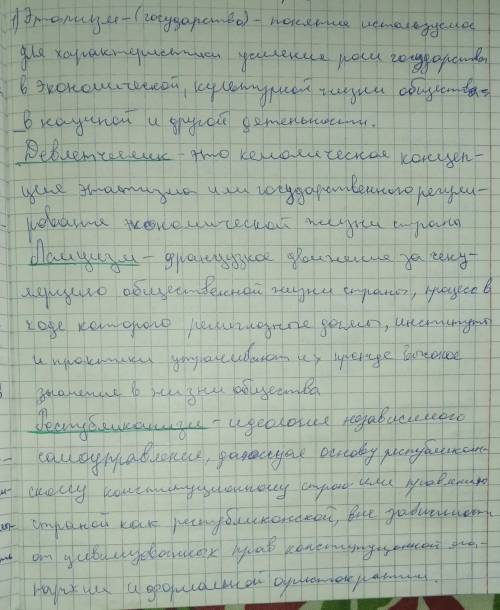 1) Этатизм – (государство) – понятие используемое
для характеристики усиление роли государства
в экономической, культурной жизни общества
в научной и другой детельности.
Девлетчилик – это кемалическая концеп-
ция этатизма или государственного регули-
рования экономической жизни страны
Лаицизм – французкое движение за секу-
ляризцию общественной жизни страны, процесс в
ходе которого религиозные догмы, институты
и практики утрачивают их прежде высокое
значение в жизни общества.
Республиканизм – идеология независимого
самоуправление, дающая основу республикан-
скому конституционному строю или правлению
страной как республиканской, вне зависимости
от цивилизованных прав конституционной мо-
нархии и формальной аристократии.